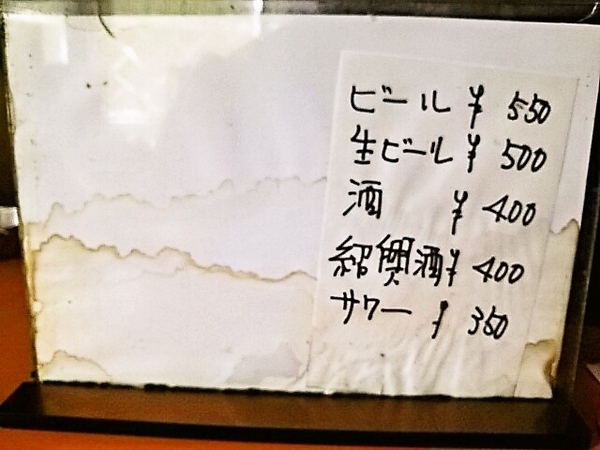 ビール ¥ 550
生ビール ¥ 500
酒 ¥ 400
紹興酒 ¥ 400
サワー ¥ 350